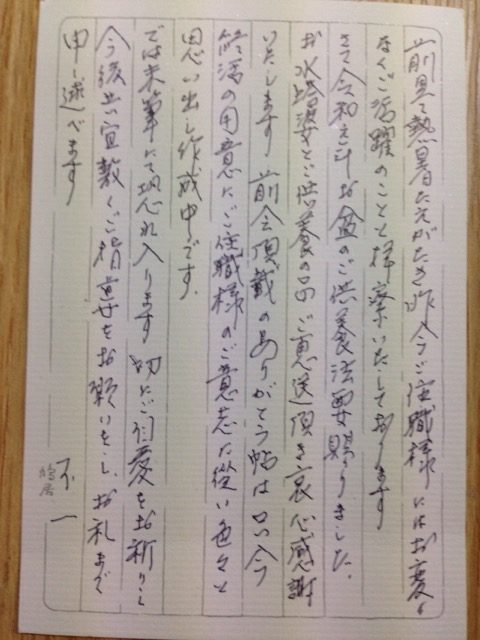 熱暑たえがたき昨今ご住職様にはお変り
なくご活躍のことと拝察いたしております
さて令和元年お盆のご供養法要賜りました、
お水塔婆とご供養の品ご恵送頂き衷心感謝
いたします 前会頂戴のありがとう帖は只今
終活の用意にご住職様のご意志に従い色々と
思い出し作成中です、
では末筆にて恐れ入ります 切にご自愛をお祈りし
今後共宜敷くご指導をお願いをし、お礼まで
申し述べます
不一
鳩居